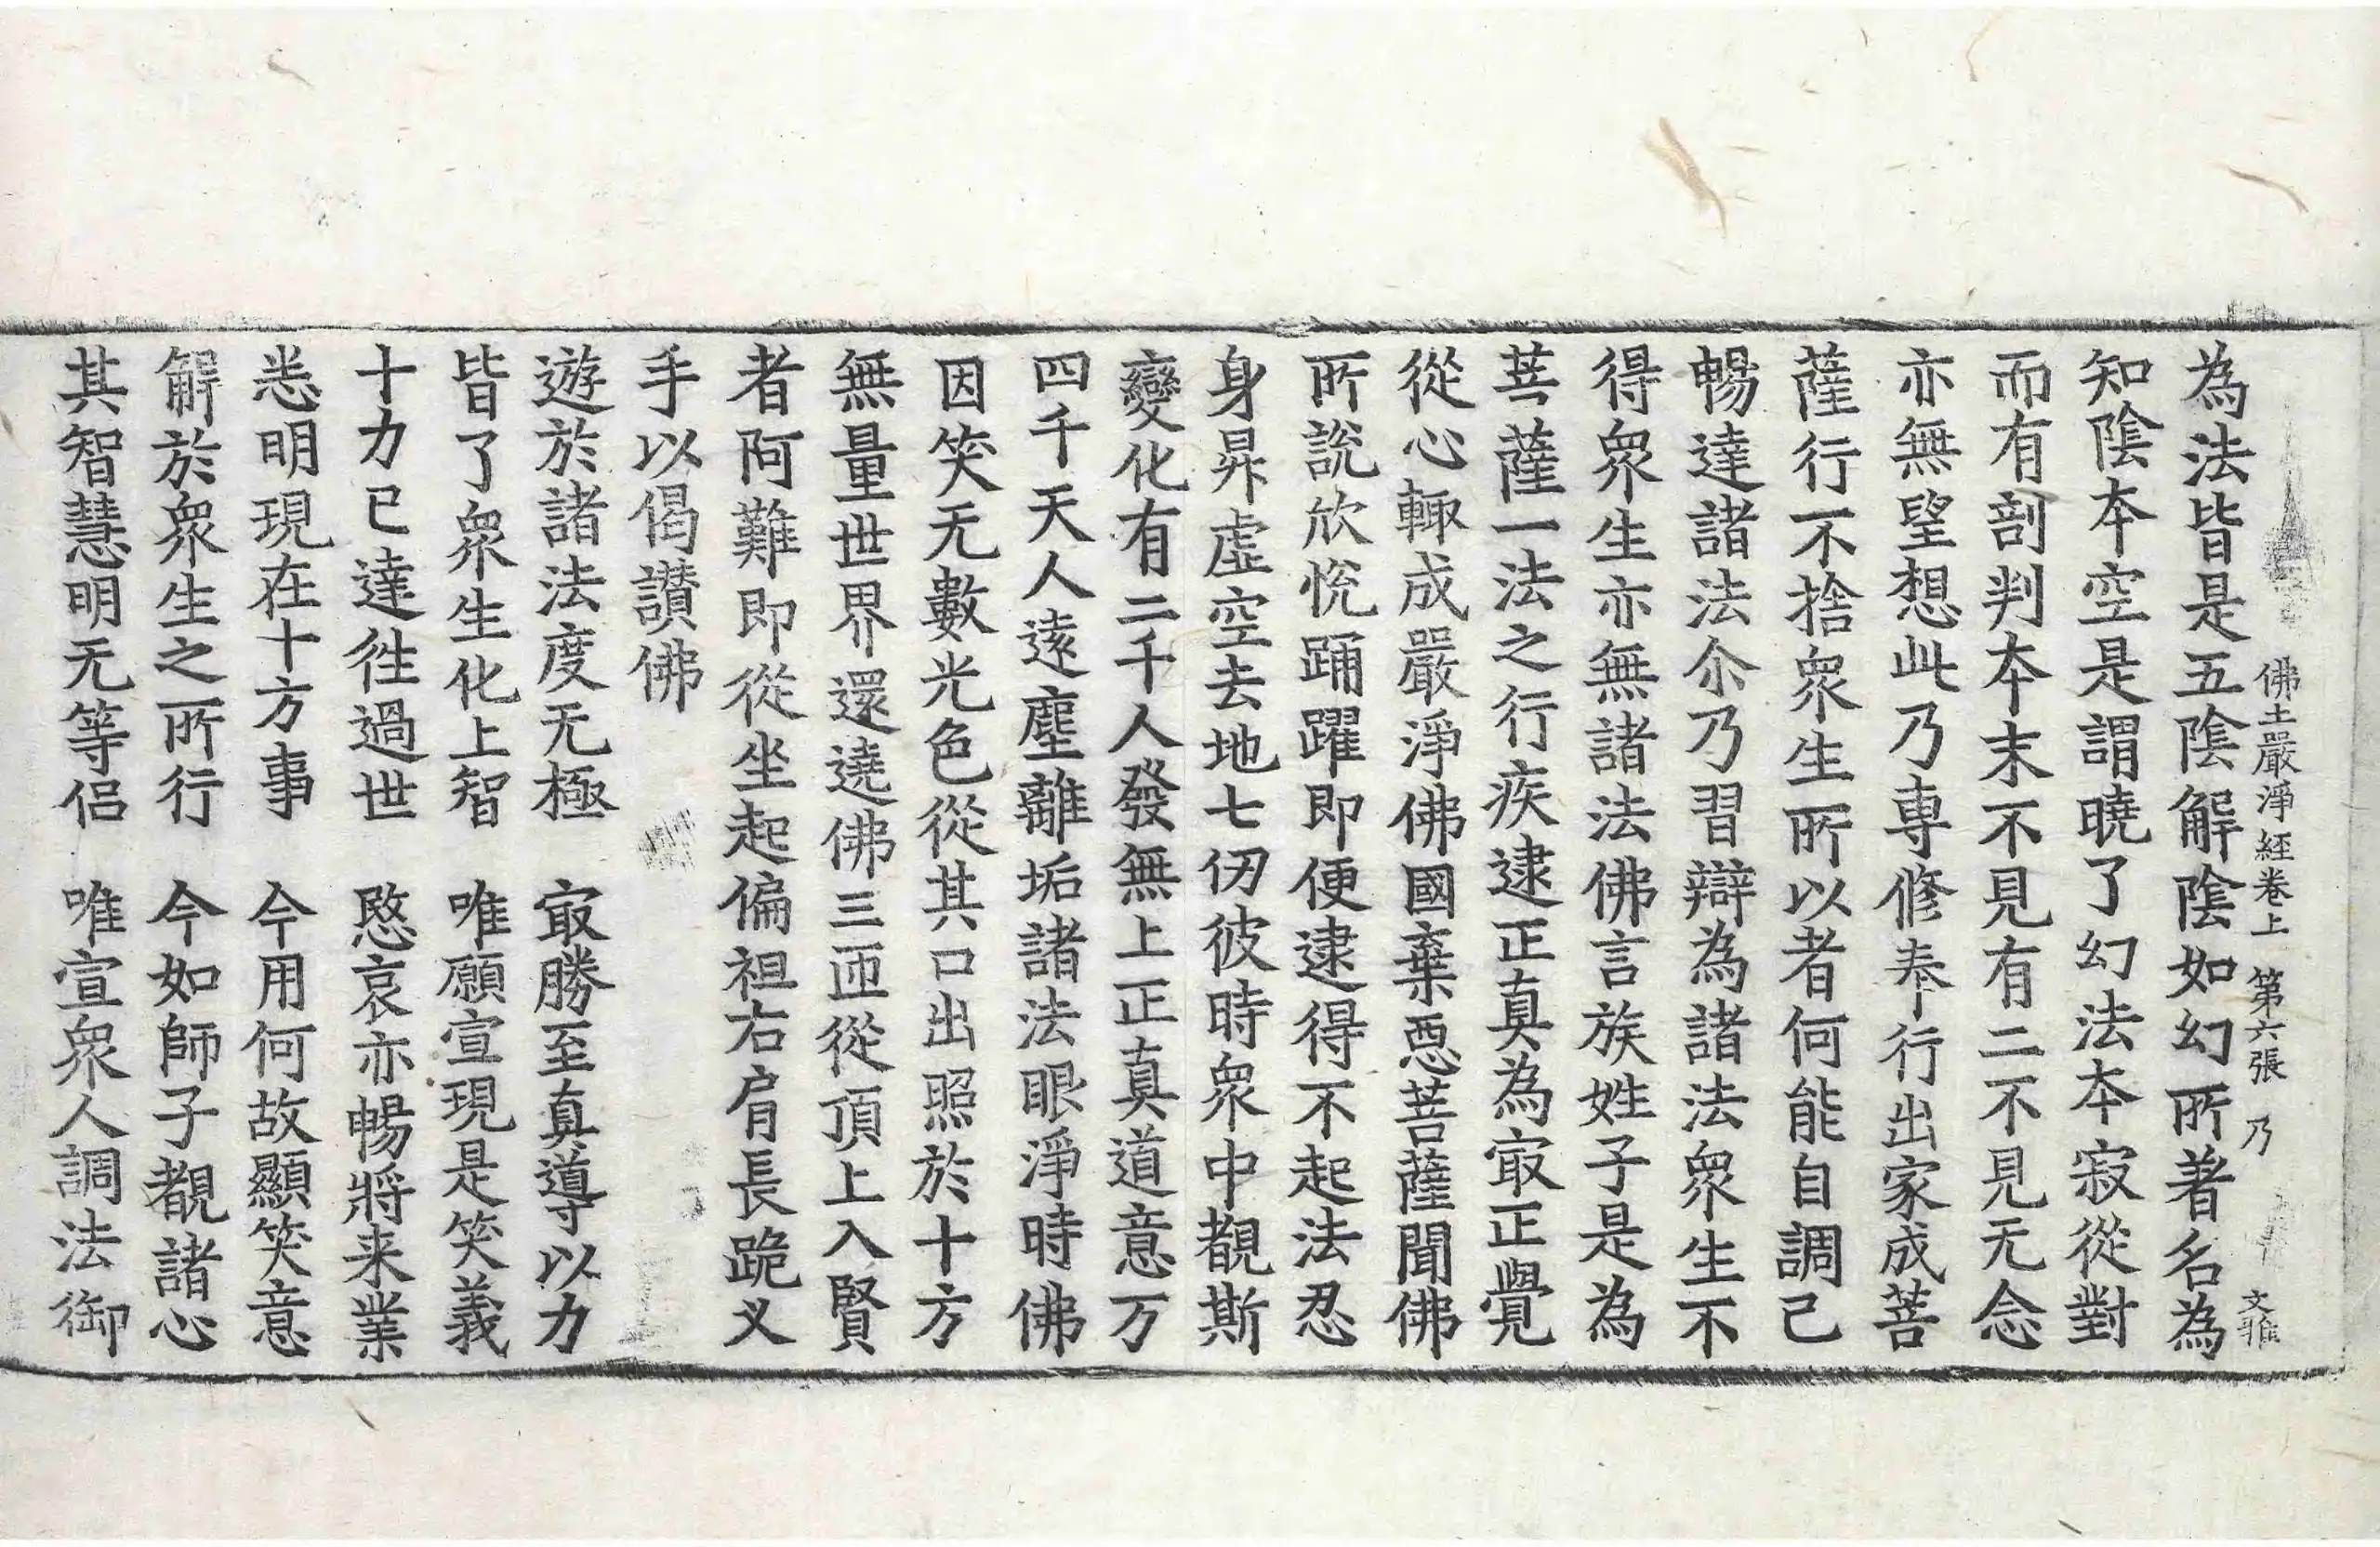 佛土嚴淨經卷上 第六張 乃 文雅
為法皆是五陰解陰如幻所著名為
知陰本空是謂曉了幻法本寂從對
而有剖判本末不見有二不見无念
亦無望想此乃專修奉行出家成菩
薩行不捨衆生所以者何能自調己
暢達諸法尒乃習辯為諸法衆生不
得衆生亦無諸法佛言族姓子是為
菩薩一法之行疾逮正真為㝡正覺
從心輙成嚴淨佛國棄惡菩薩聞佛
所說欣恱踊躍即便逮得不起法忍
身昇虛空去地七仞彼時衆中覩斯
變化有二千人發無上正真道意万
四千天人遠塵離垢諸法眼淨時佛
因笑无數光色從其口出照於十方
無量世界還遶佛三匝從頂上入賢
者阿難即從坐起偏袒右肩長跪叉
手以偈讃佛
遊於諸法度无極 㝡勝至真導以力
皆了衆生化上智 唯願宣現是笑義
十力已達徃過世 愍哀亦暢將来業
悉明現在十方事 今用何故顯笑意
解於衆生之所行 今如師子覩諸心
其智慧明无等侣 唯宣衆人調法御